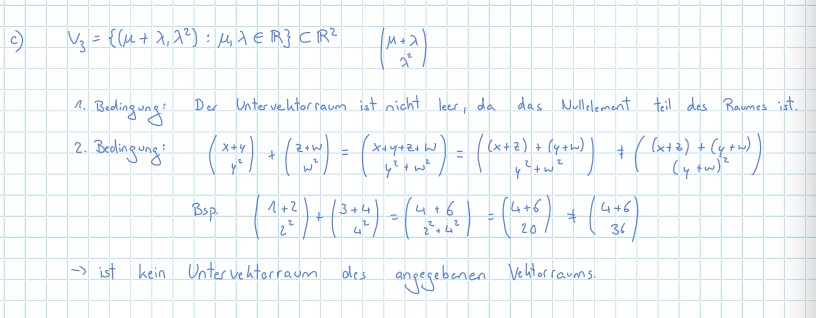 c) V₃ = {(μ + λ, λ²) : μ, λ ∈ ℝ} ⊂ ℝ² (μ+λ / λ²)
1. Bedingung: Der Untervektorraum ist nicht leer, da das Nullelement teil des Raumes ist.
2. Bedingung: (x+y / y²) + (z+w / w²) = (x+y+z+w / y²+w²) = ((x+z) + (y+w) / y²+w²) ≠ ((x+z) + (y+w) / (y+w)²)
Bsp. (1+2 / 2²) + (3+4 / 4²) = (4+6 / 2²+4²) = (4+6 / 20) ≠ (4+6 / 36)
→ ist kein Untervektorraum des angegebenen Vektorraums.